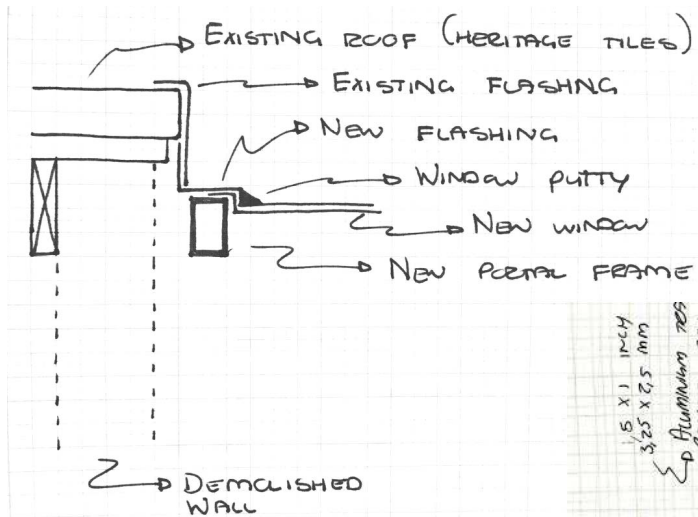 EXISTING ROOF (HERITAGE TILES)
EXISTING FLASHNG
NEW FLASHING
WINDOW PUTTY
NEW WINDOW
NEW PORTAL FRAME
DEMOLISHED
WALL
1,5 X 1 INCH
3,25 X 2,5 MM
ALUMINIUM